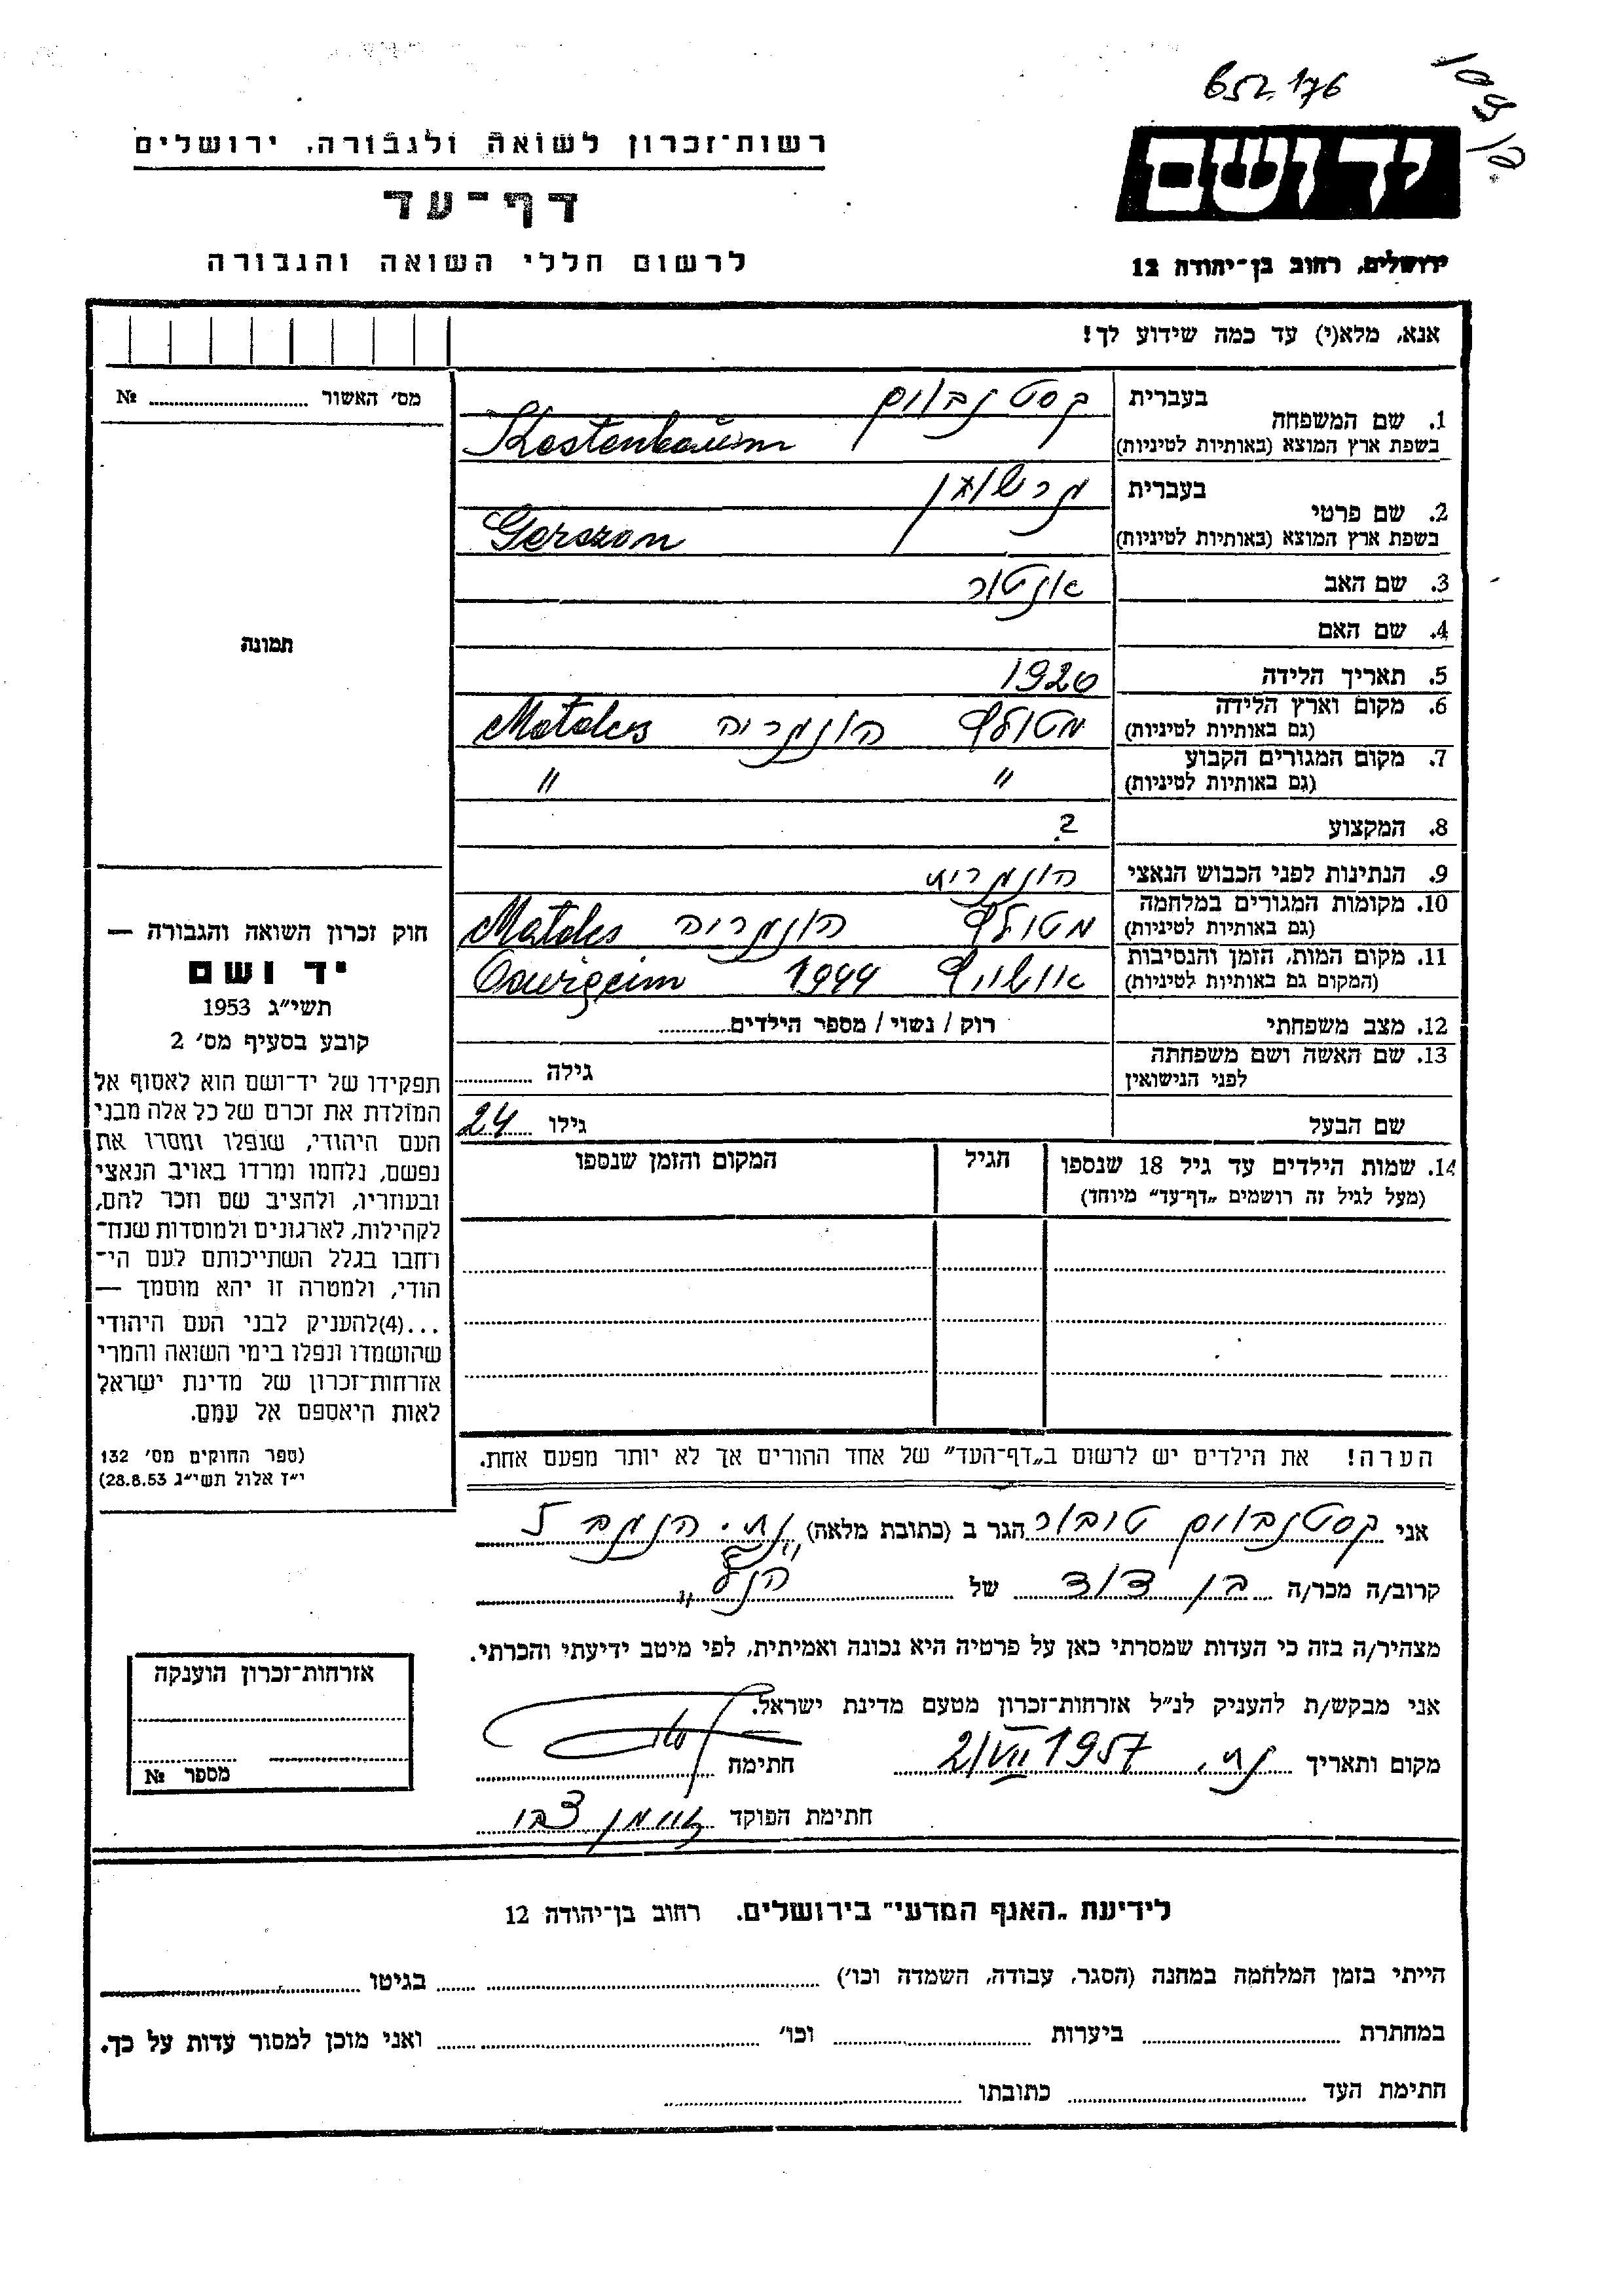 652.176
רשות־זכרון לשואה ולגבורה, ירושלים
דף־עד
לרשום חללי השואה והגבורה
יד ושם
ירושלים, רחוב בן־יהודה 12
אנא, מלא(י) עד כמה שידוע לך!
מס' האשור № 
תמונה
חוק זכרון השואה והגבורה —
יד ושם
תשי״ג 1953
קובע בסעיף מס' 2
תפקידו של יד־ושם הוא לאסוף אל
המולדת את זכרם של כל אלה מבני
העם היהודי, שנפלו ומסרו את
נפשם, נלחמו ומרדו באויב הנאצי
ובעוזריו, ולהציב שם וזכר להם,
לקהילות, לארגונים ולמוסדות שנח־
רחבו בגלל השתייכותם לעם הי־
הודי, ולמטרה זו יהא מוסמך —
...(4)להעניק לבני העם היהודי
שהושמדו ונפלו בימי השואה והמרי
אזרחות־זכרון של מדינת ישראל
לאות היאספם אל עמם.
(ספר החוקים מס' 132
י״ז אלול תשי״ג 28.8.53)
1. שם המשפחה בעברית קסטנבאום
בשפת ארץ המוצא (באותיות לטיניות) Kestenbaum
2. שם פרטי בעברית גרשון
בשפת ארץ המוצא (באותיות לטיניות) Gerszon
3. שם האב
4. שם האם
5. תאריך הלידה 1920
6. מקום וארץ הלידה (גם באותיות לטיניות) הונגריה
7. מקום המגורים הקבוע (גם באותיות לטיניות) " "
8. המקצוע ?
9. הנתינות לפני הכבוש הנאצי הונגרית
10. מקומות המגורים במלחמה (גם באותיות לטיניות) הונגריה
11. מקום המות, הזמן והנסיבות (המקום גם באותיות לטיניות) 1944
12. מצב משפחתי רוק / נשוי / מספר הילדים
13. שם האשה ושם משפחתה לפני הנישואין גילה
שם הבעל גילו 24
14. שמות הילדים עד גיל 18 שנספו הגיל המקום והזמן שנספו
(מעל לגיל זה רושמים „דף־עד״ מיוחד)
הערה! את הילדים יש לרשום ב„דף־העד״ של אחד ההורים אך לא יותר מפעם אחת.
אני קסטנבאום הגר ב (כתובת מלאה)
קרוב/ה מכר/ה בן דוד של הנ״ל
מצהיר/ה בזה כי העדות שמסרתי כאן על פרטיה היא נכונה ואמיתית, לפי מיטב ידיעתי והכרתי.
אני מבקש/ת להעניק לנ״ל אזרחות־זכרון מטעם מדינת ישראל.
מקום ותאריך 2/VII 1957 חתימה
חתימת הפוקד
אזרחות־זכרון הוענקה
מספר №
לידיעת „האגף המדעי״ בירושלים. רחוב בן־יהודה 12
הייתי בזמן המלחמה במחנה (הסגר, עבודה, השמדה וכו') בגיטו
במחתרת ביערות וכו' ואני מוכן למסור עדות על כך.
חתימת העד כתובתו